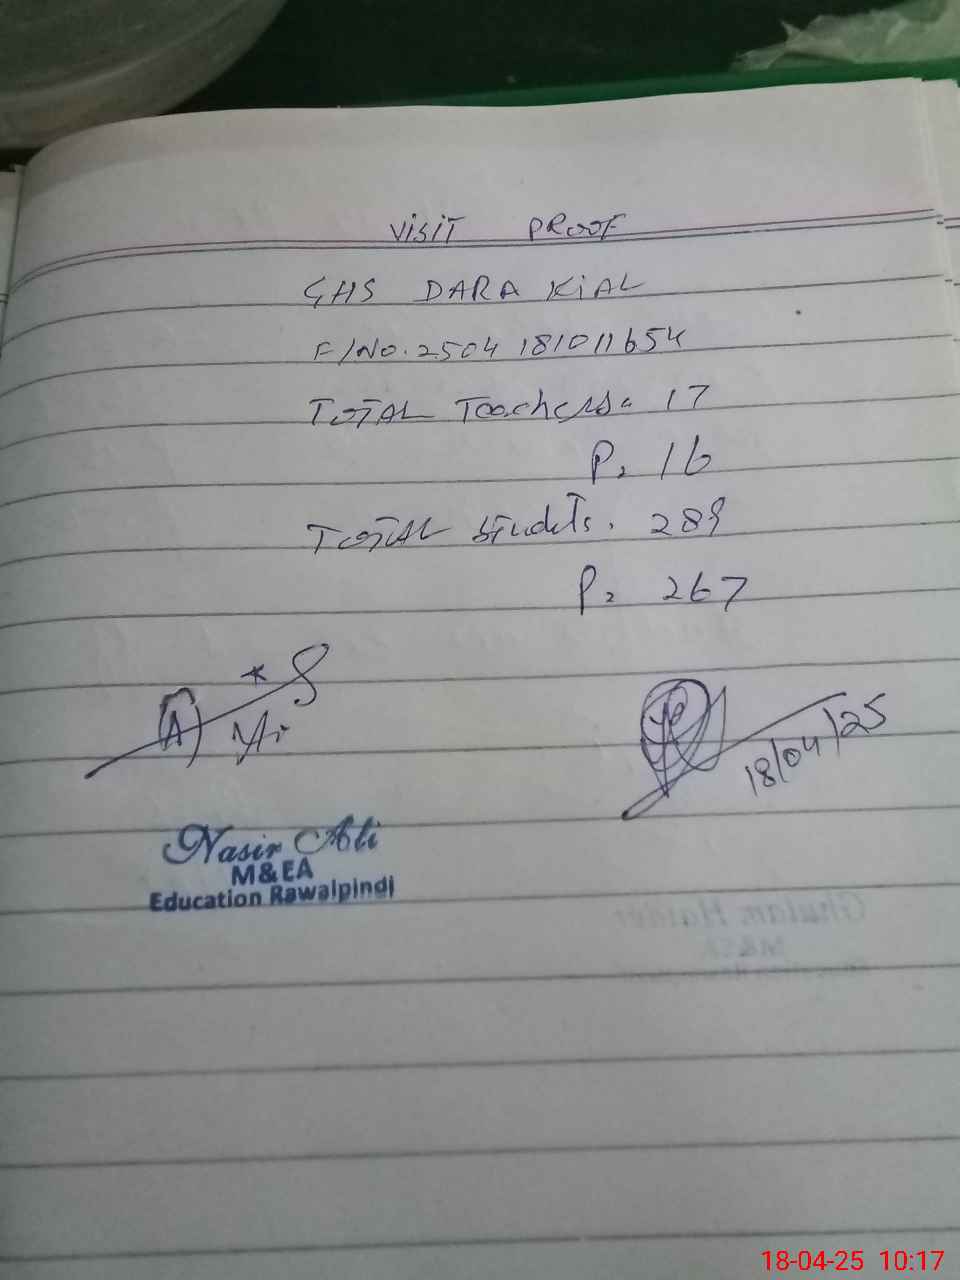 VISIT PROOF
GHS DARA KIAL
F/NO. 2504 181011654
TOTAL Teachers. 17
P. 16
TOTAL Students. 289
P. 267
18/04/25
Nasir Ali
M&EA
Education Rawalpindi
Ghulam Haider
18-04-25 10:17